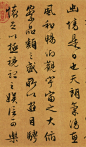 幽情是日也天朗氣清惠
風和暢仰觀宇宙之大俯
察品類之盛所以遊目騁
懷足以極視聽之娛信可樂